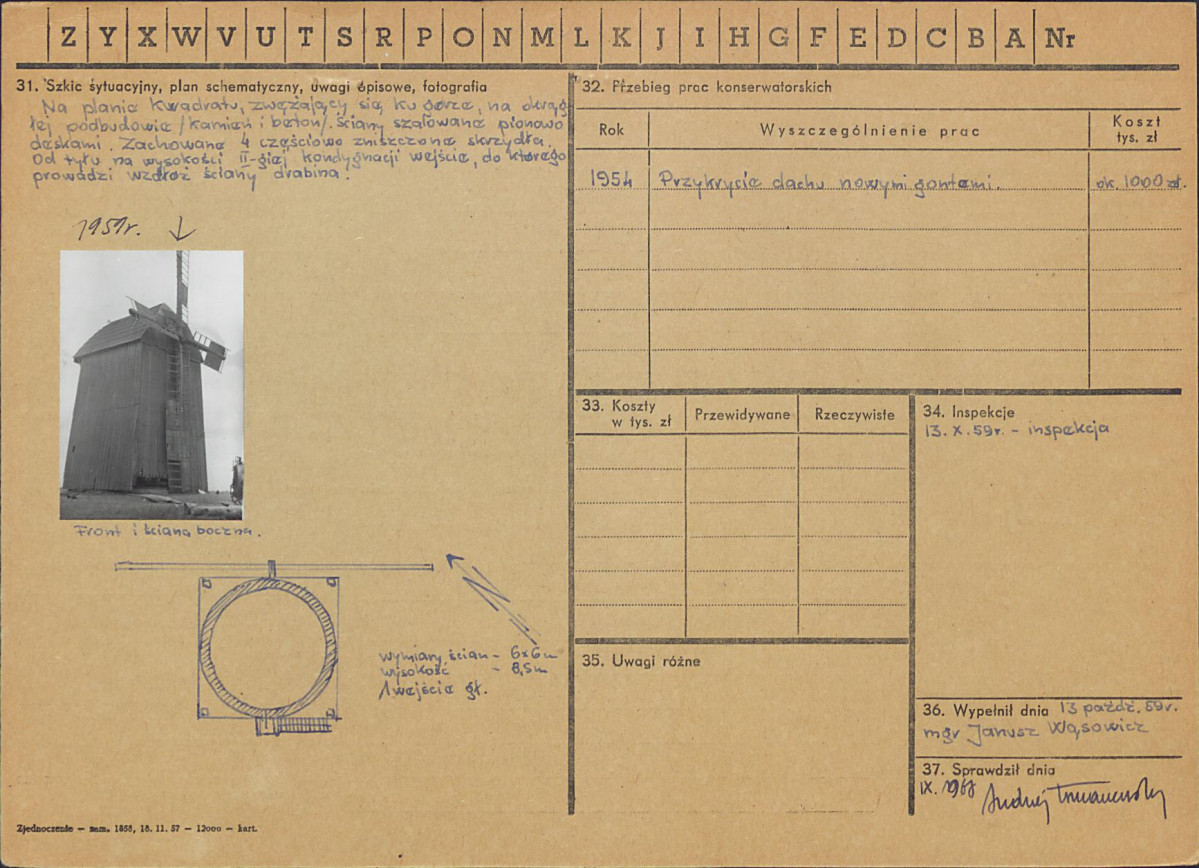 Z Y X W V U T S R P O N M L K J I H G F E D C B A Nr
31. Szkic sytuacyjny, plan schematyczny, uwagi opisowe, fotografia
Na planie kwadratu, zwężający się ku górze, na okrąg
łej podbudowie /kamień i beton/. Ściany szalowane pionowo
deskami. Zachowane 4 częściowo zniszczone skrzydła.
Od tyłu na wysokości II-giej kondygnacji wejście, do którego
prowadzi wzdłuż ściany drabina.
1959r.
Front i ściana boczna.
wymiary ścian - 6x6m
wysokość - 8,5m
1 wejście gł.
Zjednoczenie — zam. 1858, 18. 11. 57 — 12000 — kart.
32. Przebieg prac konserwatorskich
Rok Wyszczególnienie prac Koszt
tys. zł
1954 Przykrycie dachu nowymi gontami. ok. 1000 zł.
33. Koszty
w tys. zł Przewidywane Rzeczywiste
34. Inspekcje
13. X. 59r. - inspekcja
35. Uwagi różne
36. Wypełnił dnia 13 paźdz. 59r.
mgr Janusz Wąsowicz
37. Sprawdził dnia
IX. 1968 Andrzej